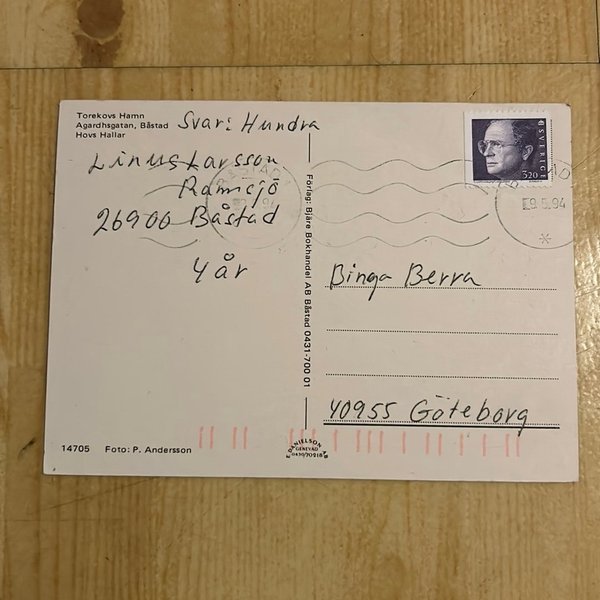 Torekovs Hamn
Agardhsgatan, Båstad
Hovs Hallar
Svar: Hundra
Linus Larsson
Ramsjö
26900 Båstad
4 år
Förlag: Bjäre Bokhandel AB Båstad 0431-700 01
SVERIGE
3.20
E9.5.94
Binga Berra
40955 Göteborg
14705 Foto: P. Andersson
E. DANIELSON AB
GENEVAD
0430/70218